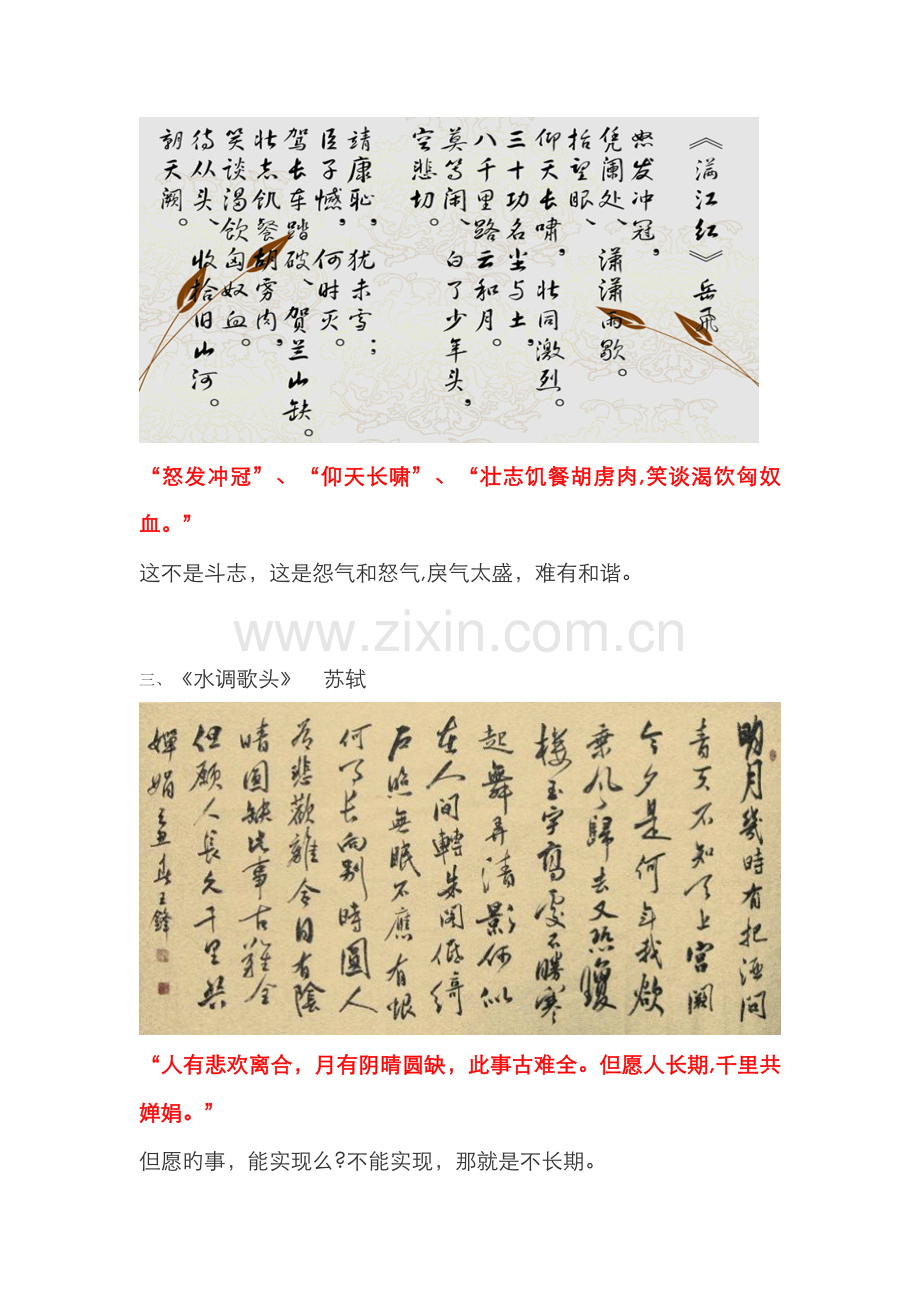 《满江红》岳飞
怒发冲冠，
凭阑处、潇潇雨歇。
抬望眼、
仰天长啸，壮同激烈。
三十功名尘与土，
八千里路云和月。
莫等闲、白了少年头，
空悲切。
靖康耻，犹未雪；
臣子憾，何时灭。
驾长车踏破、贺兰山缺。
壮志饥餐胡虏肉，
笑谈渴饮匈奴血。
待从头、收拾旧山河。
朝天阙。
“怒发冲冠”、“仰天长啸”、“壮志饥餐胡虏肉,笑谈渴饮匈奴
血。”
这不是斗志，这是怨气和怒气,戾气太盛，难有和谐。
www.zixin.com.cn
三、《水调歌头》 苏轼
明月幾時有把酒問
青天不知天上宫闕
今夕是何年我欲
乘風歸去又恐瓊
樓玉宇高處不勝寒
起舞弄清影何似
在人間轉朱閣低綺
戶照無眠不應有恨
何事长向别時圓人
有悲歡離合月有陰
晴圓缺此事古難全
但願人長久千里共
嬋娟
“人有悲欢离合，月有阴晴圆缺，此事古难全。但愿人长期,千里共
婵娟。”
但愿旳事，能实现么?不能实现，那就是不长期。